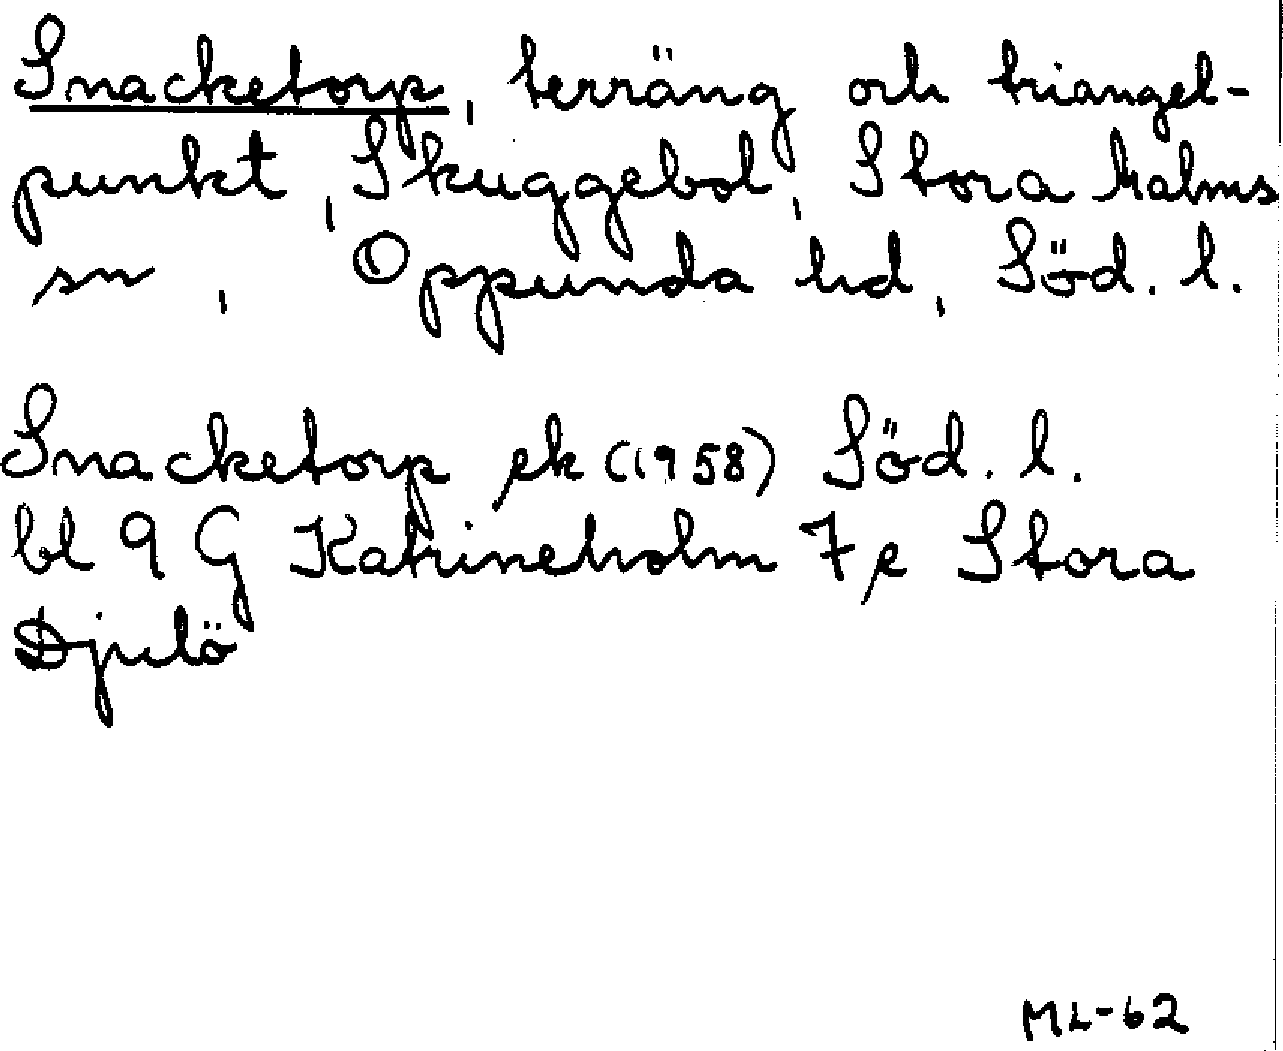 Snacketorp, terräng och triangel-
punkt, Skuggebol, Stora Malms
sn, Oppunda hd, Söd. l.
Snacketorp ek (1958) Söd. l.
bl 9 G Katrineholm 7 e Stora
Djulö
ML-62